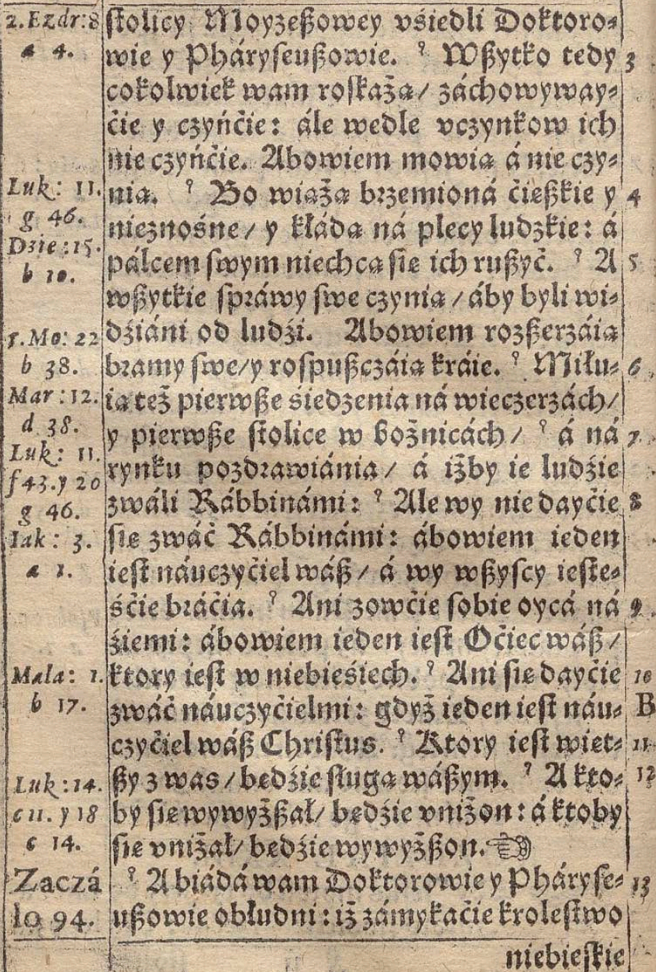 2.Ezdr:8
a 4.
Luk: 11.
g 46.
Dzie:15.
b 10.
5.Mo: 22
b 38.
Mar: 12.
d 38.
Luk: 11.
f 43. y 20
g 46.
Iak: 3.
a 1.
Mala: 1.
b 17.
Luk: 14.
c 11. y 18
c 14.
Zaczá
ło 94.
stolicy Moyzeßowey vśiedli Doktoro⸗
wie y Pháryseußowie. ⁊ Wßytko tedy 3
cokolwiek wam roskażą/ záchowyway⸗
ćie y czyńćie: ále wedle vczynkow ich
nie czyńćie. Abowiem mowią á nie czy⸗
nią. ⁊ Bo wiążą brzemioná ćießkie y 4
nieznośne/ y kłádą ná plecy ludzkie: á
pálcem swym niechcą sie ich rußyć. ⁊ A 5
wßytkie spráwy swe czynią/ áby byli wi⸗
dźiáni od ludźi. Abowiem rozßerzáią
bramy swe/ y rospußczáią kráie. ⁊ Miłu⸗ 6.
ią też pierwße siedzenia ná wieczerzách/
y pierwße stolice w bożnicách/ ⁊ á ná 7.
rynku pozdrawiánia/ á iżby ie ludźie
zwáli Rábbinámi: ⁊ Ale wy nie dayćie 8
się zwáć Rábbinámi: ábowiem ieden
iest náuczyćiel wáß/ á wy wßyscy ieste⸗
śćie bráćia. ⁊ Ani zowćie sobie oycá ná 9.
źiemi: ábowiem ieden iest Oćiec wáß/
ktory iest w niebieśiech. ⁊ Ani się dayćie 10
zwáć náuczyćielmi: gdyż ieden iest náu⸗ B
czyćiel wáß Christus. ⁊ Ktory iest więt⸗ 11
ßy z was/ będźie sługą wáßym. ⁊ A kto⸗ 12
by się wywyżßał/ będźie vniżon: á ktoby
się vniżał/ będźie wywyżßon.☜
⁊ A biádá wam Doktorowie y Pháryse⸗ 13
ußowie obłudni: iż zámykaćie krolestwo
niebieskie